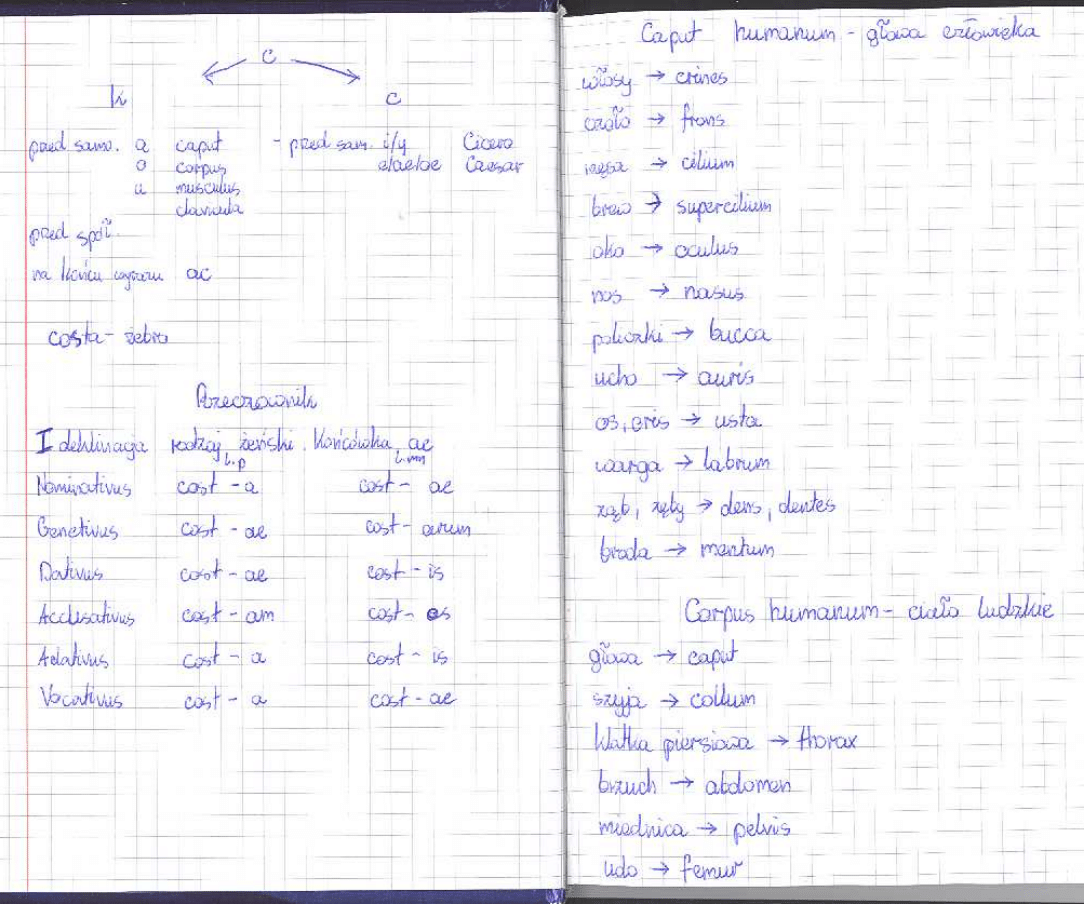 c
k c
przed samo. a caput - przed sam. i/y Cicero
o corpus e/ae/oe Caesar
u musculus
clavicula
przed spół.
na końcu wyrazu ac
costa - żebro
Rzeczownik
I deklinacja rodzaj żeński. Końcówka, ae
l.p l.mn
Nominativus cost - a cost - ae
Genetivus cost - ae cost - arum
Dativus cost - ae cost - is
Accusativus cost - am cost - as
Ablativus cost - a cost - is
Vocativus cost - a cost - ae
Caput humanum - głowa człowieka
włosy → crines
czoło → frons
rzęsa → cilium
brew → supercilium
oko → oculus
nos → nasus
policzki → bucca
ucho → auris
os, oris → usta
warga → labrum
ząb, zęby → dens, dentes
broda → mentum
Corpus humanum - ciało ludzkie
głowa → caput
szyja → collum
klatka piersiowa → thorax
brzuch → abdomen
miednica → pelvis
udo → femur